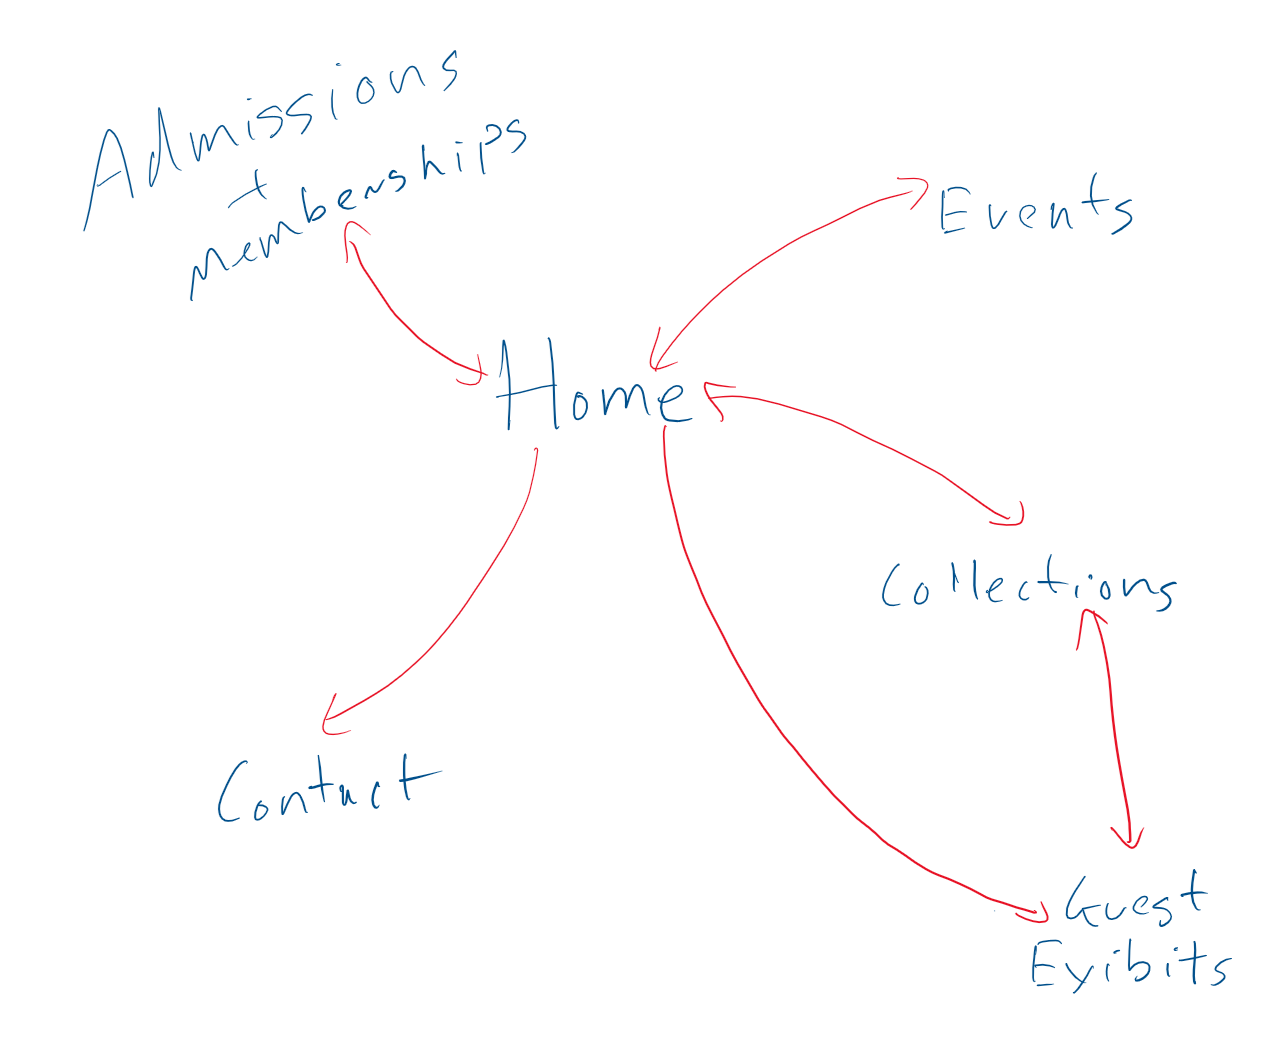 Admissions
+
memberships
Events
Home
Collections
Contact
Guest
Exibits